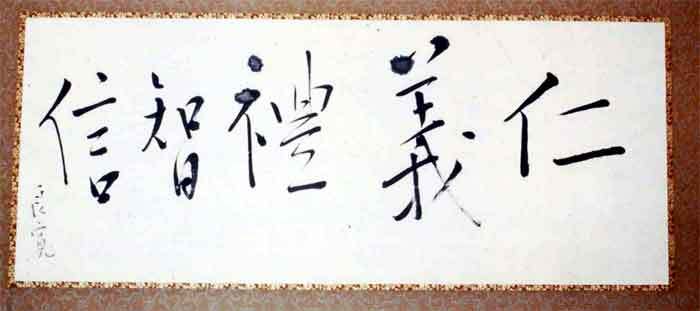 仁義禮智信
良寛